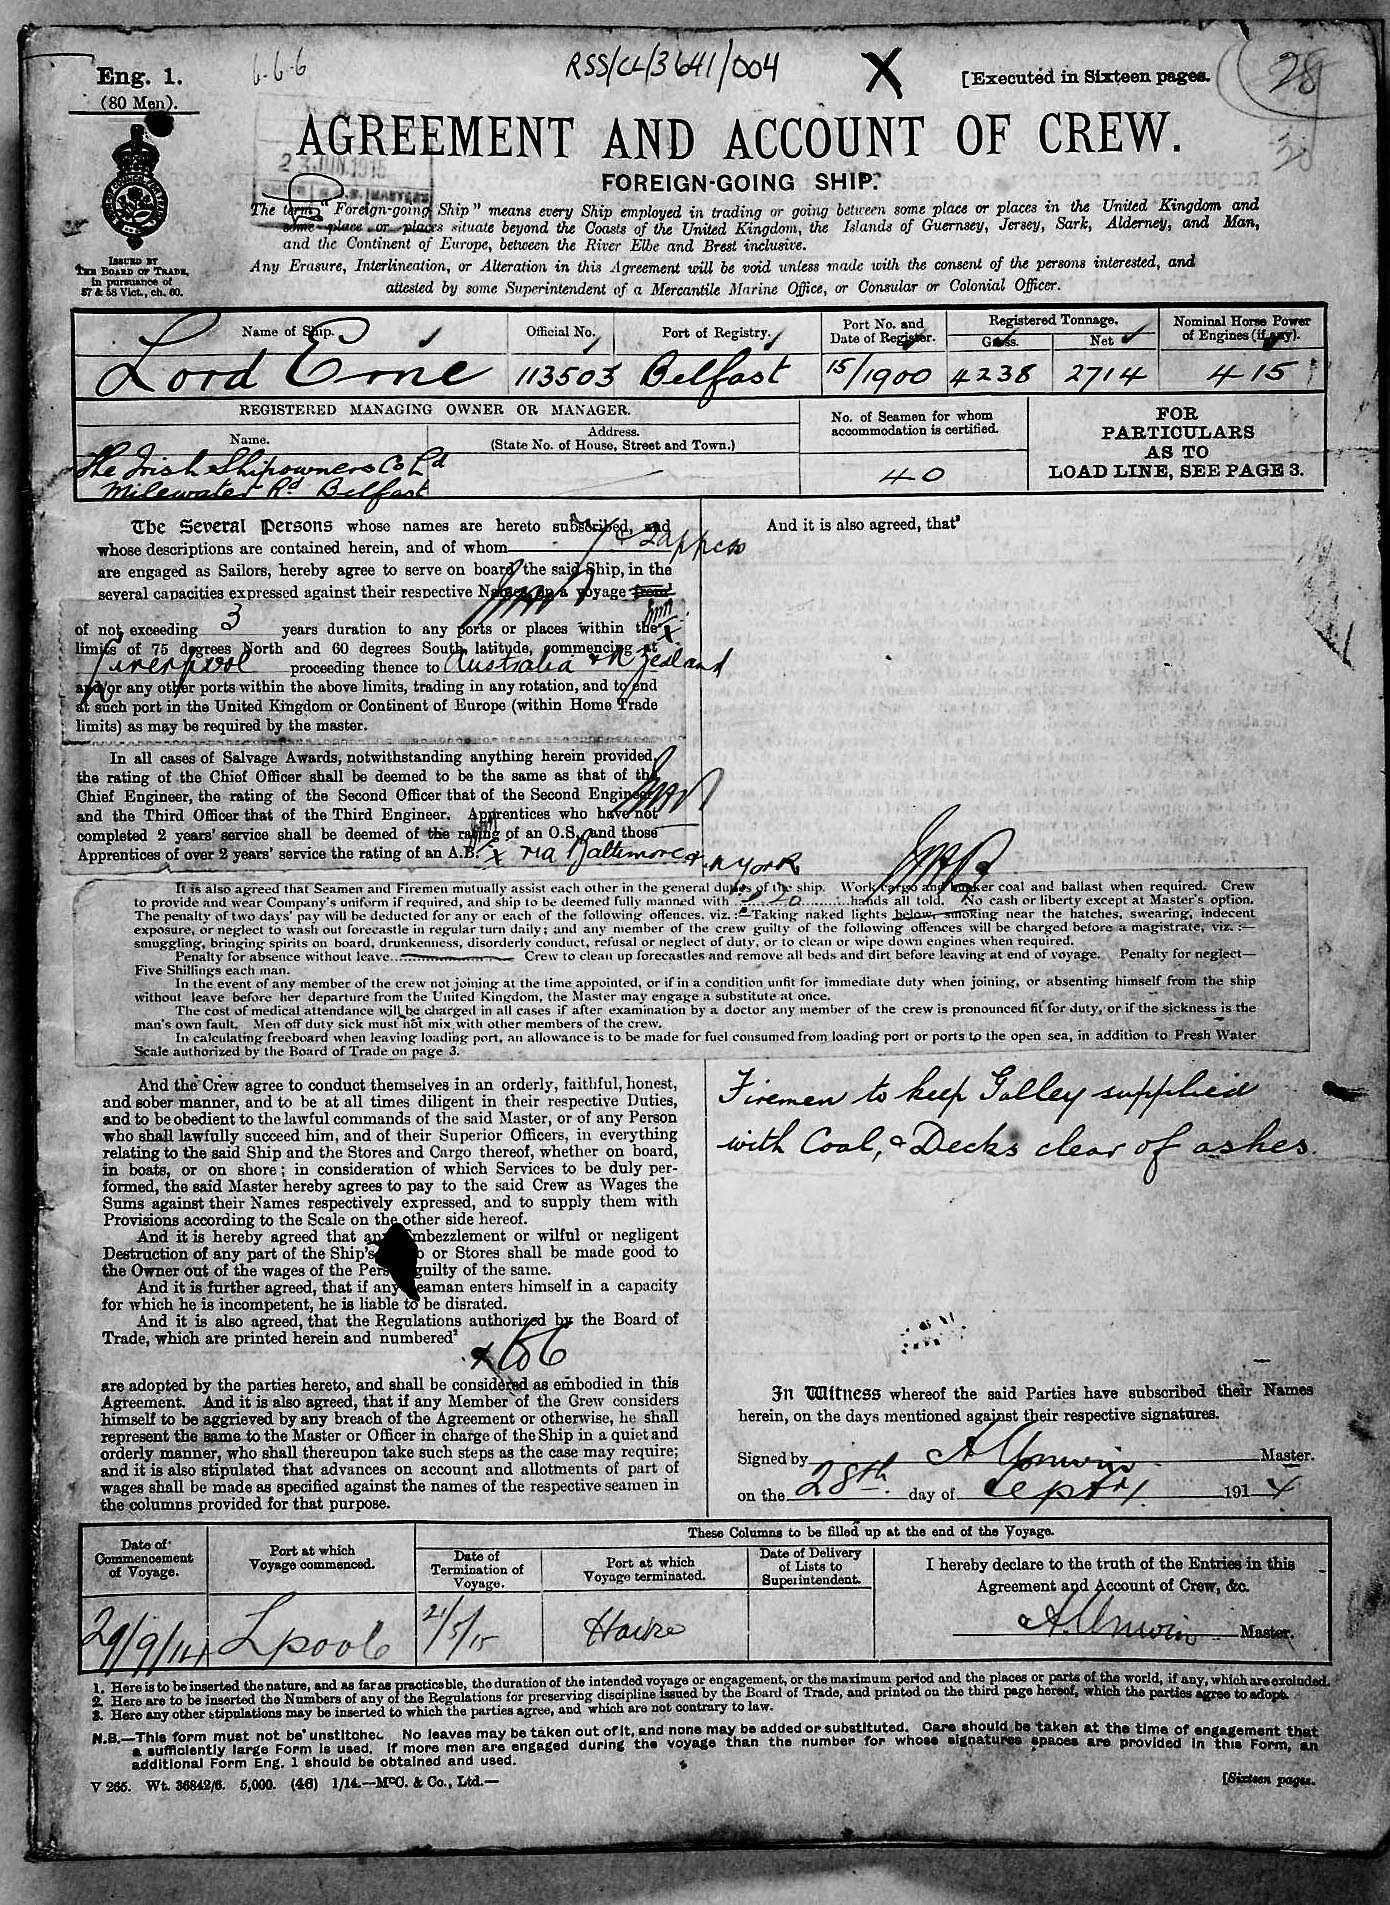 Eng. 1.
(80 Men).
6-6-6
RSS/CL/3641/004
X
[Executed in Sixteen pages.
28
30
AGREEMENT AND ACCOUNT OF CREW.
23 JUN 1915
FOREIGN-GOING SHIP.
ISSUED BY
THE BOARD OF TRADE,
in pursuance of
57 & 58 Vict., ch. 60.
The term "Foreign-going Ship" means every Ship employed in trading or going between some place or places in the United Kingdom and
some place or places situate beyond the Coasts of the United Kingdom, the Islands of Guernsey, Jersey, Sark, Alderney, and Man,
and the Continent of Europe, between the River Elbe and Brest inclusive.
Any Erasure, Interlineation, or Alteration in this Agreement will be void unless made with the consent of the persons interested, and
attested by some Superintendent of a Mercantile Marine Office, or Consular or Colonial Officer.
Name of Ship. Official No. Port of Registry. Port No. and Date of Register. Registered Tonnage. Gross. Net Nominal Horse Power of Engines (if any).
Lord Erne 113503 Belfast 15/1900 4238 2714 415
REGISTERED MANAGING OWNER OR MANAGER.
Name.
Address.
(State No. of House, Street and Town.)
No. of Seamen for whom
accommodation is certified.
FOR
PARTICULARS
AS TO
LOAD LINE, SEE PAGE 3.
The Irish Shipowners Co Ld
Milewater Rd Belfast
40
The Several Persons whose names are hereto subscribed, and
whose descriptions are contained herein, and of whom
are engaged as Sailors, hereby agree to serve on board the said Ship, in the
several capacities expressed against their respective Names, on a voyage from
of not exceeding 3 years duration to any ports or places within the
limits of 75 degrees North and 60 degrees South latitude, commencing at
Liverpool proceeding thence to Australia & N Zealand
and/or any other ports within the above limits, trading in any rotation, and to end
at such port in the United Kingdom or Continent of Europe (within Home Trade
limits) as may be required by the master.
In all cases of Salvage Awards, notwithstanding anything herein provided,
the rating of the Chief Officer shall be deemed to be the same as that of the
Chief Engineer, the rating of the Second Officer that of the Second Engineer
and the Third Officer that of the Third Engineer. Apprentices who have not
completed 2 years' service shall be deemed of the rating of an O.S. and those
Apprentices of over 2 years' service the rating of an A.B. x via Baltimore & N York
And it is also agreed, that³
It is also agreed that Seamen and Firemen mutually assist each other in the general duties of the ship. Work cargo and bunker coal and ballast when required. Crew
to provide and wear Company's uniform if required, and ship to be deemed fully manned with hands all told. No cash or liberty except at Master's option.
The penalty of two days' pay will be deducted for any or each of the following offences, viz.:—Taking naked lights below, smoking near the hatches, swearing, indecent
exposure, or neglect to wash out forecastle in regular turn daily; and any member of the crew guilty of the following offences will be charged before a magistrate, viz.:—
smuggling, bringing spirits on board, drunkenness, disorderly conduct, refusal or neglect of duty, or to clean or wipe down engines when required.
Penalty for absence without leave Crew to clean up forecastles and remove all beds and dirt before leaving at end of voyage. Penalty for neglect—
Five Shillings each man.
In the event of any member of the crew not joining at the time appointed, or if in a condition unfit for immediate duty when joining, or absenting himself from the ship
without leave before her departure from the United Kingdom, the Master may engage a substitute at once.
The cost of medical attendance will be charged in all cases if after examination by a doctor any member of the crew is pronounced fit for duty, or if the sickness is the
man's own fault. Men off duty sick must not mix with other members of the crew.
In calculating freeboard when leaving loading port, an allowance is to be made for fuel consumed from loading port or ports to the open sea, in addition to Fresh Water
Scale authorized by the Board of Trade on page 3.
And the Crew agree to conduct themselves in an orderly, faithful, honest,
and sober manner, and to be at all times diligent in their respective Duties,
and to be obedient to the lawful commands of the said Master, or of any Person
who shall lawfully succeed him, and of their Superior Officers, in everything
relating to the said Ship and the Stores and Cargo thereof, whether on board,
in boats, or on shore; in consideration of which Services to be duly per-
formed, the said Master hereby agrees to pay to the said Crew as Wages the
Sums against their Names respectively expressed, and to supply them with
Provisions according to the Scale on the other side hereof.
And it is hereby agreed that any Embezzlement or wilful or negligent
Destruction of any part of the Ship's or Stores shall be made good to
the Owner out of the wages of the Person guilty of the same.
And it is further agreed, that if any Seaman enters himself in a capacity
for which he is incompetent, he is liable to be disrated.
And it is also agreed, that the Regulations authorized by the Board of
Trade, which are printed herein and numbered²
1 to 6
are adopted by the parties hereto, and shall be considered as embodied in this
Agreement. And it is also agreed, that if any Member of the Crew considers
himself to be aggrieved by any breach of the Agreement or otherwise, he shall
represent the same to the Master or Officer in charge of the Ship in a quiet and
orderly manner, who shall thereupon take such steps as the case may require;
and it is also stipulated that advances on account and allotments of part of
wages shall be made as specified against the names of the respective seamen in
the columns provided for that purpose.
Firemen to keep Galley supplied
with Coal, & Decks clear of ashes.
In Witness whereof the said Parties have subscribed their Names
herein, on the days mentioned against their respective signatures.
Signed by A Unwin Master.
on the 28th day of Septr 1914
Date of Commencement of Voyage. Port at which Voyage commenced.
These Columns to be filled up at the end of the Voyage.
Date of Termination of Voyage. Port at which Voyage terminated. Date of Delivery of Lists to Superintendent.
I hereby declare to the truth of the Entries in this
Agreement and Account of Crew, &c.
29/9/14 Lpool 21/5/15 Havre A. Unwin Master.
1. Here is to be inserted the nature, and as far as practicable, the duration of the intended voyage or engagement, or the maximum period and the places or parts of the world, if any, which are excluded.
2. Here are to be inserted the Numbers of any of the Regulations for preserving discipline issued by the Board of Trade, and printed on the third page hereof, which the parties agree to adopt.
3. Here any other stipulations may be inserted to which the parties agree, and which are not contrary to law.
N.B.—This form must not be unstitched. No leaves may be taken out of it, and none may be added or substituted. Care should be taken at the time of engagement that
a sufficiently large Form is used. If more men are engaged during the voyage than the number for whose signatures spaces are provided in this Form, an
additional Form Eng. 1 should be obtained and used.
V 265. Wt. 36842/6. 5,000. (46) 1/14.—McC. & Co., Ltd.—
[Sixteen pages.